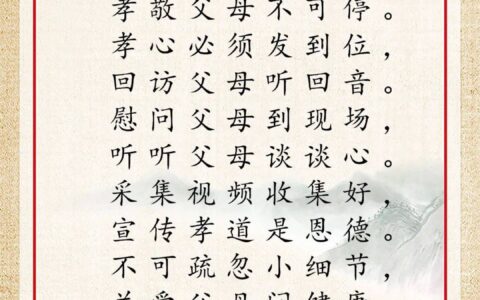 孝敬父母不可停。
孝心必须发到位，
回访父母听回音。
慰问父母到现场，
听听父母谈谈心。
采集视频收集好，
宣传孝道是恩德。
不可疏忽小细节，
关爱父母问健康